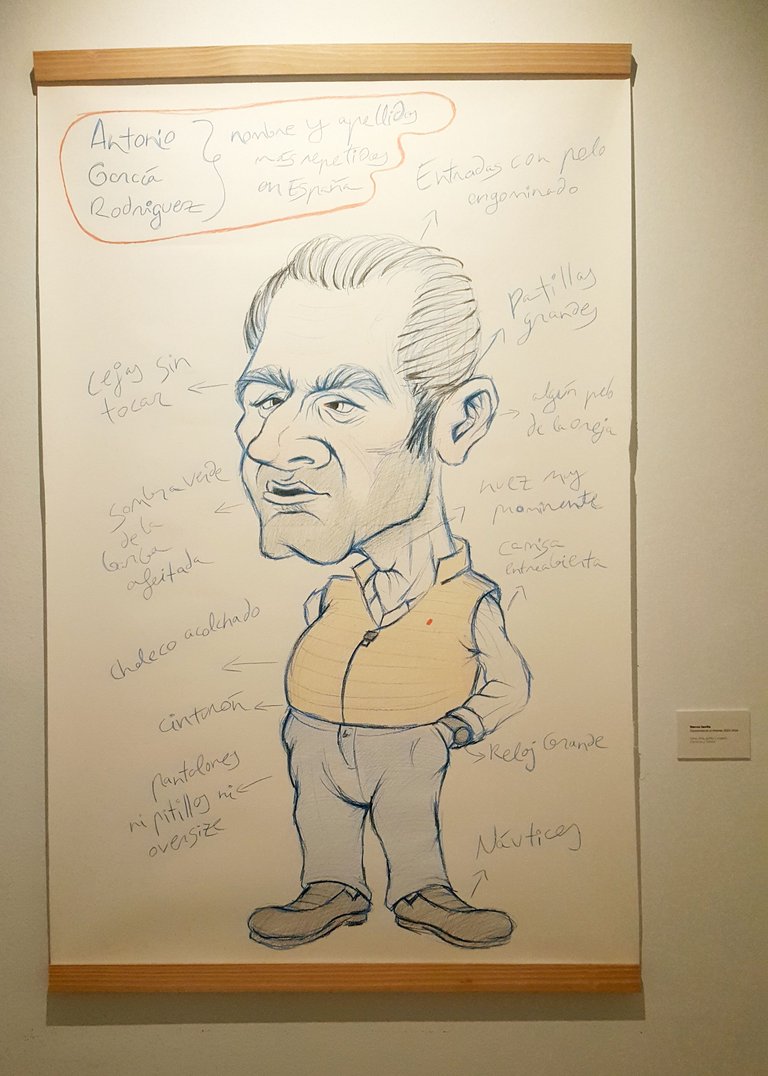 Antonio
García
Rodriguez
nombre y apellidos
más repetidos
en España
Entradas con pelo
engominado
Patillas
grandes
cejas sin
tocar
algún pelo
de la oreja
sombra verde
de la
barba
afeitada
nuez muy
prominente
camisa
entreabierta
chaleco acolchado
cinturón
Reloj Grande
pantalones
ni pitillos ni
oversize
Náuticos